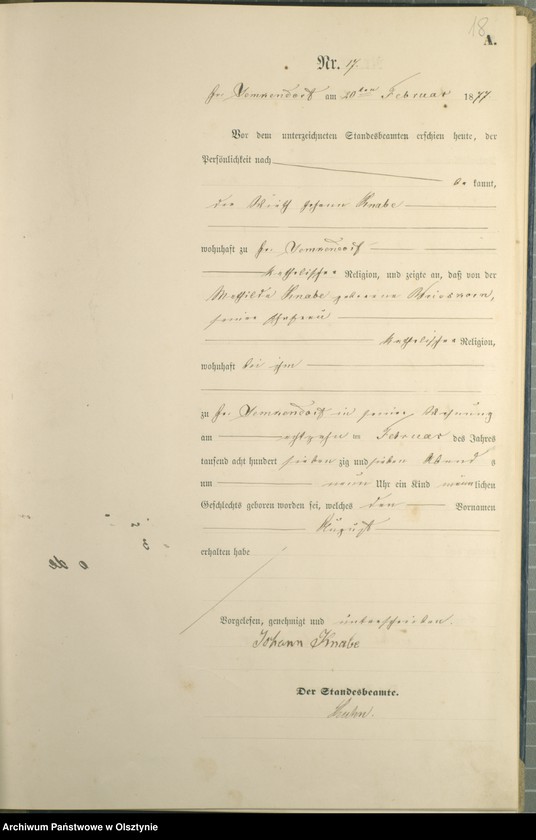 18
A.
Nr. 17.
Gr. Lemkendorf am 20ten Februar 1877
Vor dem unterzeichneten Standesbeamten erschien heute, der
Persönlichkeit nach
be kannt,
der Wirth Johann Knabe
wohnhaft zu Gr. Lemkendorf
katholischer Religion, und zeigte an, daß von der
Mathilde Knabe geborene
seiner Ehefrau
katholischer Religion,
wohnhaft bei ihm
zu Gr. Lemkendorf in seiner Wohnung
am achtzehn ten Februar des Jahres
tausend acht hundert sieben zig und sieben Abend s
um neun Uhr ein Kind männlichen
Geschlechts geboren worden sei, welches den Vornamen
August
erhalten habe
Vorgelesen, genehmigt und unterschrieben.
Johann Knabe
Der Standesbeamte.
Archiwum Państwowe w Olsztynie